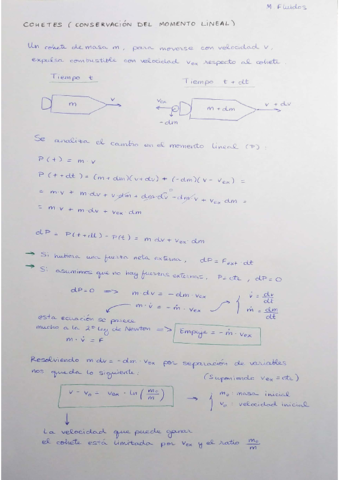 M. Fluidos
COHETES (CONSERVACIÓN DEL MOMENTO LINEAL)
Un cohete de masa m, para moverse con velocidad v,
expulsa combustible con velocidad vex respecto al cohete
Tiempo t
Tiempo t + dt
m
v
vex
m + dm
v + dv
-dm
Se analiza el cambio en el momento lineal (P):
P(t) = m v
P(t+dt) = (m+dm)(v+dv) + (-dm)(v - vex) =
= m v + m dv + v dm + dm dv - dm v + vex dm =
= m v + m dv + vex dm
dP = P(t+dt) - P(t) = m dv + vex dm
→ Si hubiera una fuerza neta externa, dP = Fext dt
→ Si asumimos que no hay fuerzas externas, P = cte, dP = 0
dP = 0 ⟹ m dv = - dm vex
m · v̇ = - ṁ · vex
v̇ = dv/dt
ṁ = dm/dt
esta ecuación se parece
mucho a la 2ª Ley de Newton ⟹ Empuje = - ṁ · vex
m · v̇ = F
Resolviendo m dv = - dm · vex por separación de variables
nos queda lo siguiente:
(Suponiendo vex = cte)
v - v0 = vex · ln(m0/m) ⟶
m0 - masa inicial
v0 - velocidad inicial
La velocidad que puede ganar
el cohete está limitada por vex y el ratio m0/m